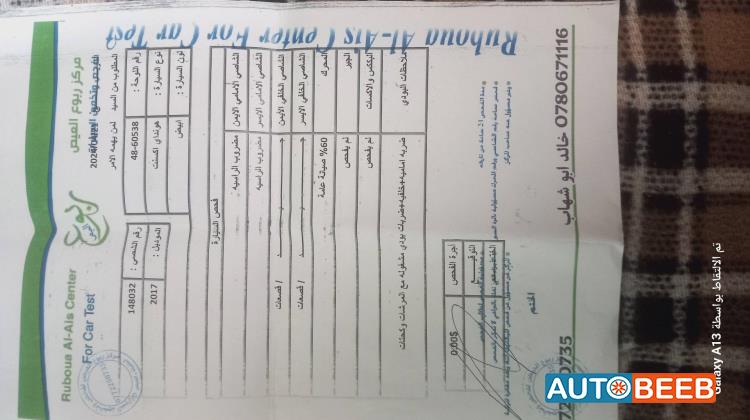 Ruboua Al-Ais Center
For Car Test
مركز ربوع العيص
لفحص وتخمين السيارات
المطلوب من السيد لمن يهمه الامر
رقم اللوحة : 48-60538 رقم الشصي : 148032
نوع السيارة : هونداي اكسنت الموديل : 2017
لون السيارة : ابيض
فحص السيارة
الشاصي الامامي الايمن مضروب الراسية
الشاصي الامامي الايسر مضروب الراسيه
الشاصي الخلفي الأيمن جـــــــــــــيـــــــــــــد / قصعات
الشاصي الخلفي الايسر جـــــــــــــيـــــــــــــد / قصعات
المحرك 60% صيانة عامة
الجير لم يفحص
البكس والاكسات لم يفحص
ملاحظات البودي ضربه اماميه+خلفيه+ضربات بودي مشغوله مع الفرشات وكحتات
اجرة الفحص 0.00$
التوقيع
الختم
0780671116 خالد ابو شهاب
0735
Ruboua Al-Ais Center For Car Test
تم الالتقاط بواسطة Galaxy A13
AUTOBEEB.com